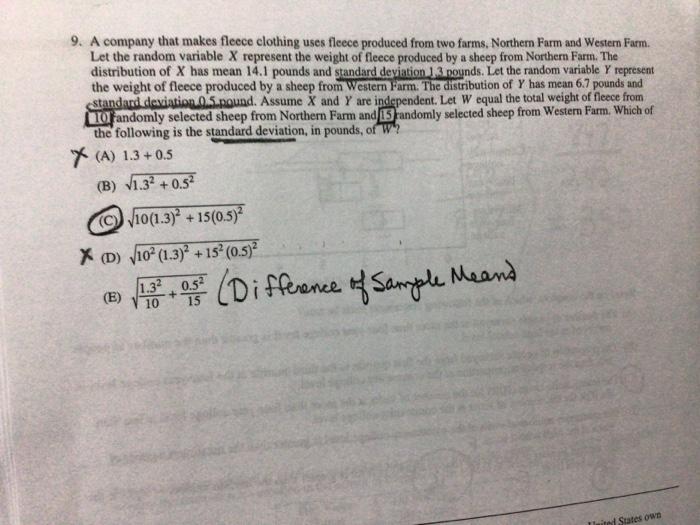 9. A company that makes fleece clothing uses fleece produced from two farms, Northern Farm and Western Farm.
Let the random variable X represent the weight of fleece produced by a sheep from Northern Farm. The
distribution of X has mean 14.1 pounds and standard deviation 1.3 pounds. Let the random variable Y represent
the weight of fleece produced by a sheep from Western Farm. The distribution of Y has mean 6.7 pounds and
standard deviation 0.5 pound. Assume X and Y are independent. Let W equal the total weight of fleece from
10 randomly selected sheep from Northern Farm and 15 randomly selected sheep from Western Farm. Which of
the following is the standard deviation, in pounds, of W?
X (A) 1.3 + 0.5
(B) √1.3² + 0.5²
(C) √10(1.3)² + 15(0.5)²
X (D) √10² (1.3)² + 15² (0.5)²
(E) √1.3²/10 + 0.5²/15 (Difference of Sample Means)
States own